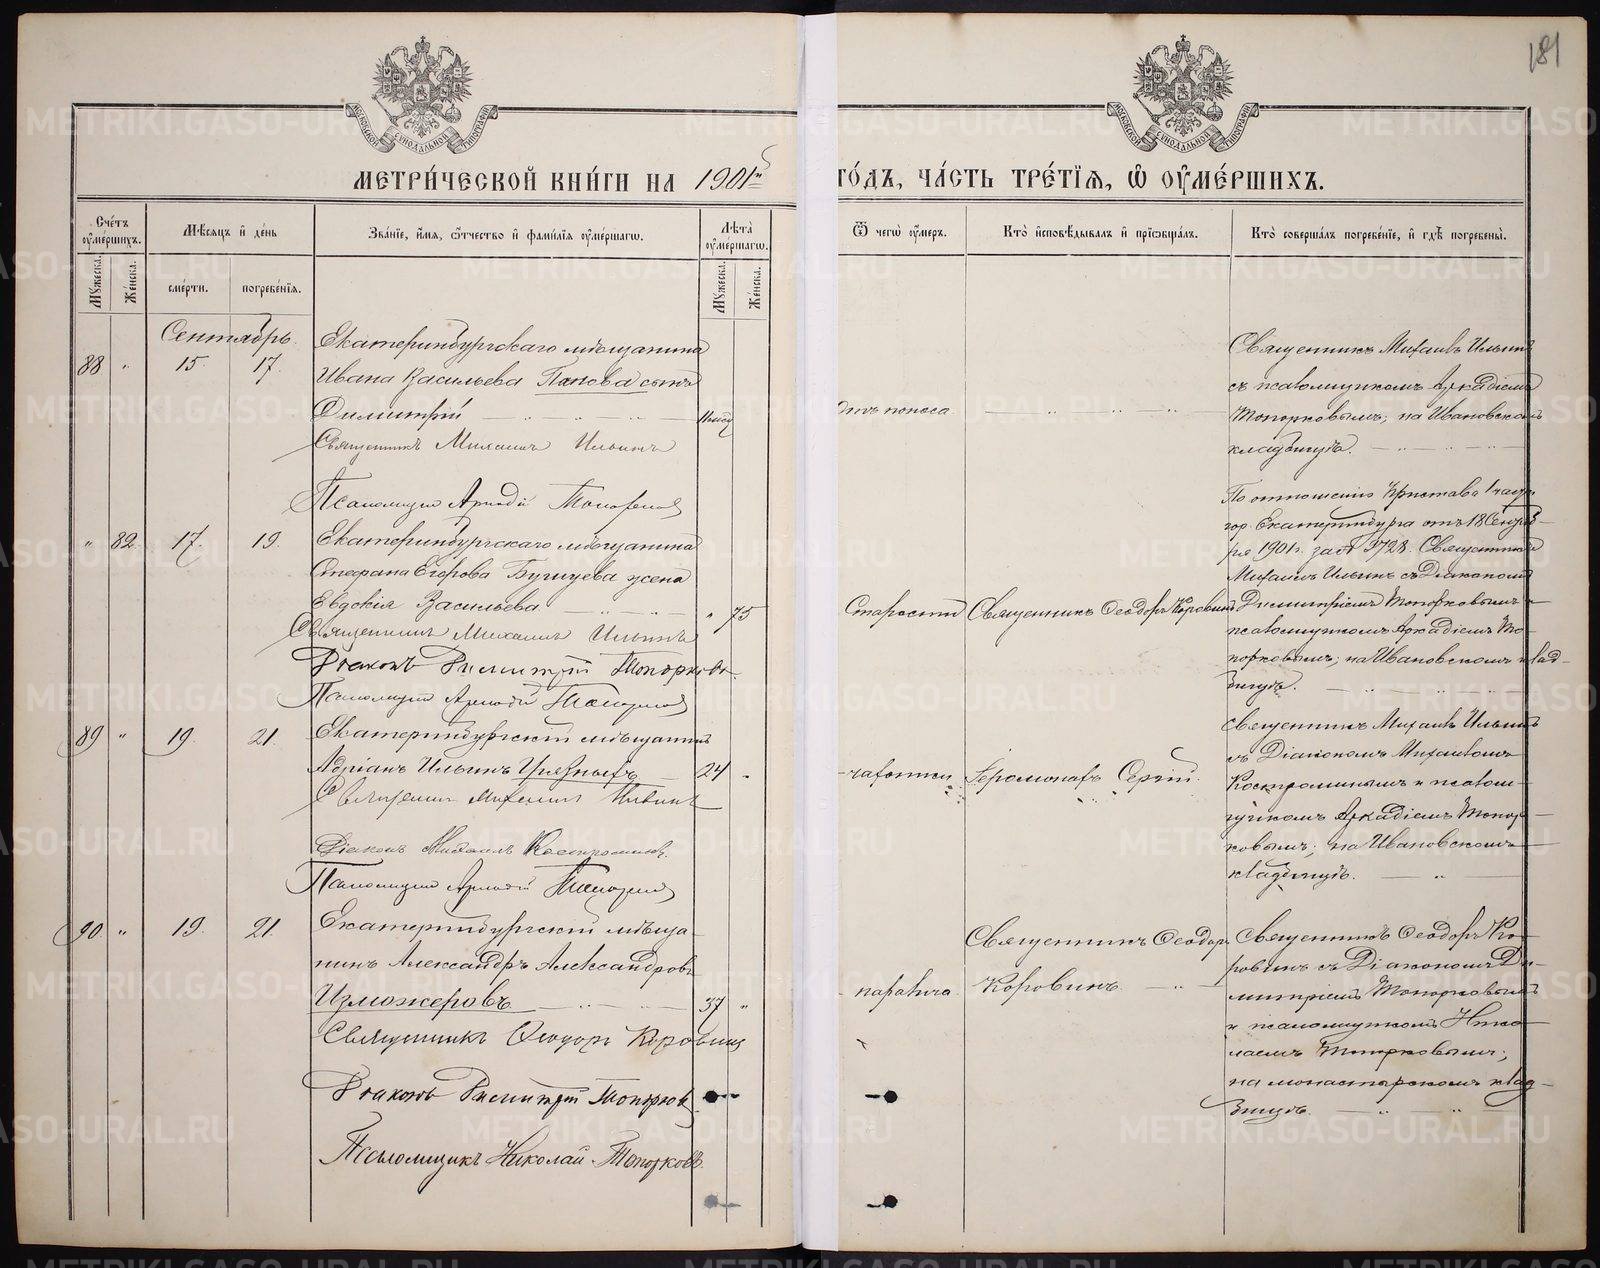 181
МОСКОВСКОЙ СУНОДАЛЬНОЙ ТИПОГРАФІИ
МОСКОВСКОЙ СУНОДАЛЬНОЙ ТИПОГРАФІИ
МЕТРИ́ЧЕСКОЙ КНИ́ГИ НА 1901й
ГО́ДЪ, ЧА́СТЬ ТРЕ́ТІѦ, Ѿ ОУМЕ́РШИХЪ.
Сче́тъ оумершихъ.
Мужеска.
Же́нска.
Мѣсяцъ и де́нь
сме́рти.
погребе́нія.
Зва́ніе, и́мя, о́тчество и фами́лія оумершагѡ.
Лѣта̀ оуме́ршагѡ.
Мужеска.
Же́нска.
Ѿ чегѡ̀ оу́меръ.
Кто̀ исповѣдывалъ и пріѡбща́лъ.
Кто̀ соверша́лъ погребе́ніе, и гдѣ погребены̀.
Сентябрь
88 „ 15. 17.
Екатеринбургскаго мѣщанина
Ивана Васильева Попова сынъ
Димитрій
Священникъ Михаилъ Ильинъ
Псаломщикъ Аркадій Топорковъ
отъ поноса
Священникъ Михаилъ Ильинъ
съ псаломщикомъ Аркадіемъ
Топорковымъ; на Ивановскомъ
кладбищѣ.
„ 82 17. 19.
Екатеринбургскаго мѣщанина
Стефана Егорова жена
Евдокія Васильева
„ 75
Священникъ Михаилъ Ильинъ
Діаконъ Димитрій Топорковъ
Псаломщикъ Аркадій Топорковъ
Старости
Священникъ Ѳеодоръ Коровинъ
По отношенію Пристава 1 части
гор. Екатеринбурга отъ 18 Сентяб-
ря 1901 г. за № 3728. Священникъ
Михаилъ Ильинъ съ Діакономъ
Димитріемъ Топорковымъ и
псаломщикомъ Аркадіемъ То-
порковымъ; на Ивановскомъ клад-
бищѣ.
89 „ 19. 21.
Екатеринбургскій мѣщанинъ
Адріанъ Ильинъ
24 „
Священникъ Михаилъ Ильинъ
Діаконъ Михаилъ Костроминъ
Псаломщикъ Аркадій Топорковъ
чахотки
Іеромонахъ Сергій.
Священникъ Михаилъ Ильинъ
съ Діакономъ Михаиломъ
Костроминымъ и псалом-
щикомъ Аркадіемъ Топор-
ковымъ; на Ивановскомъ
кладбищѣ.
90. „ 19. 21.
Екатеринбургскій мѣща-
нинъ Александръ Александровъ
Изможеровъ
37 „
Священникъ Ѳеодоръ Коровинъ
Діаконъ Димитрій Топорковъ
Псаломщикъ Николай Топорковъ.
паралича
Священникъ Ѳеодоръ
Коровинъ
Священникъ Ѳеодоръ Ко-
ровинъ съ Діакономъ Ди-
митріемъ Топорковымъ
и псаломщикомъ Нико-
лаемъ Топорковымъ;
на монастырскомъ клад-
бищѣ.
METRIKI.GASO-URAL.RU